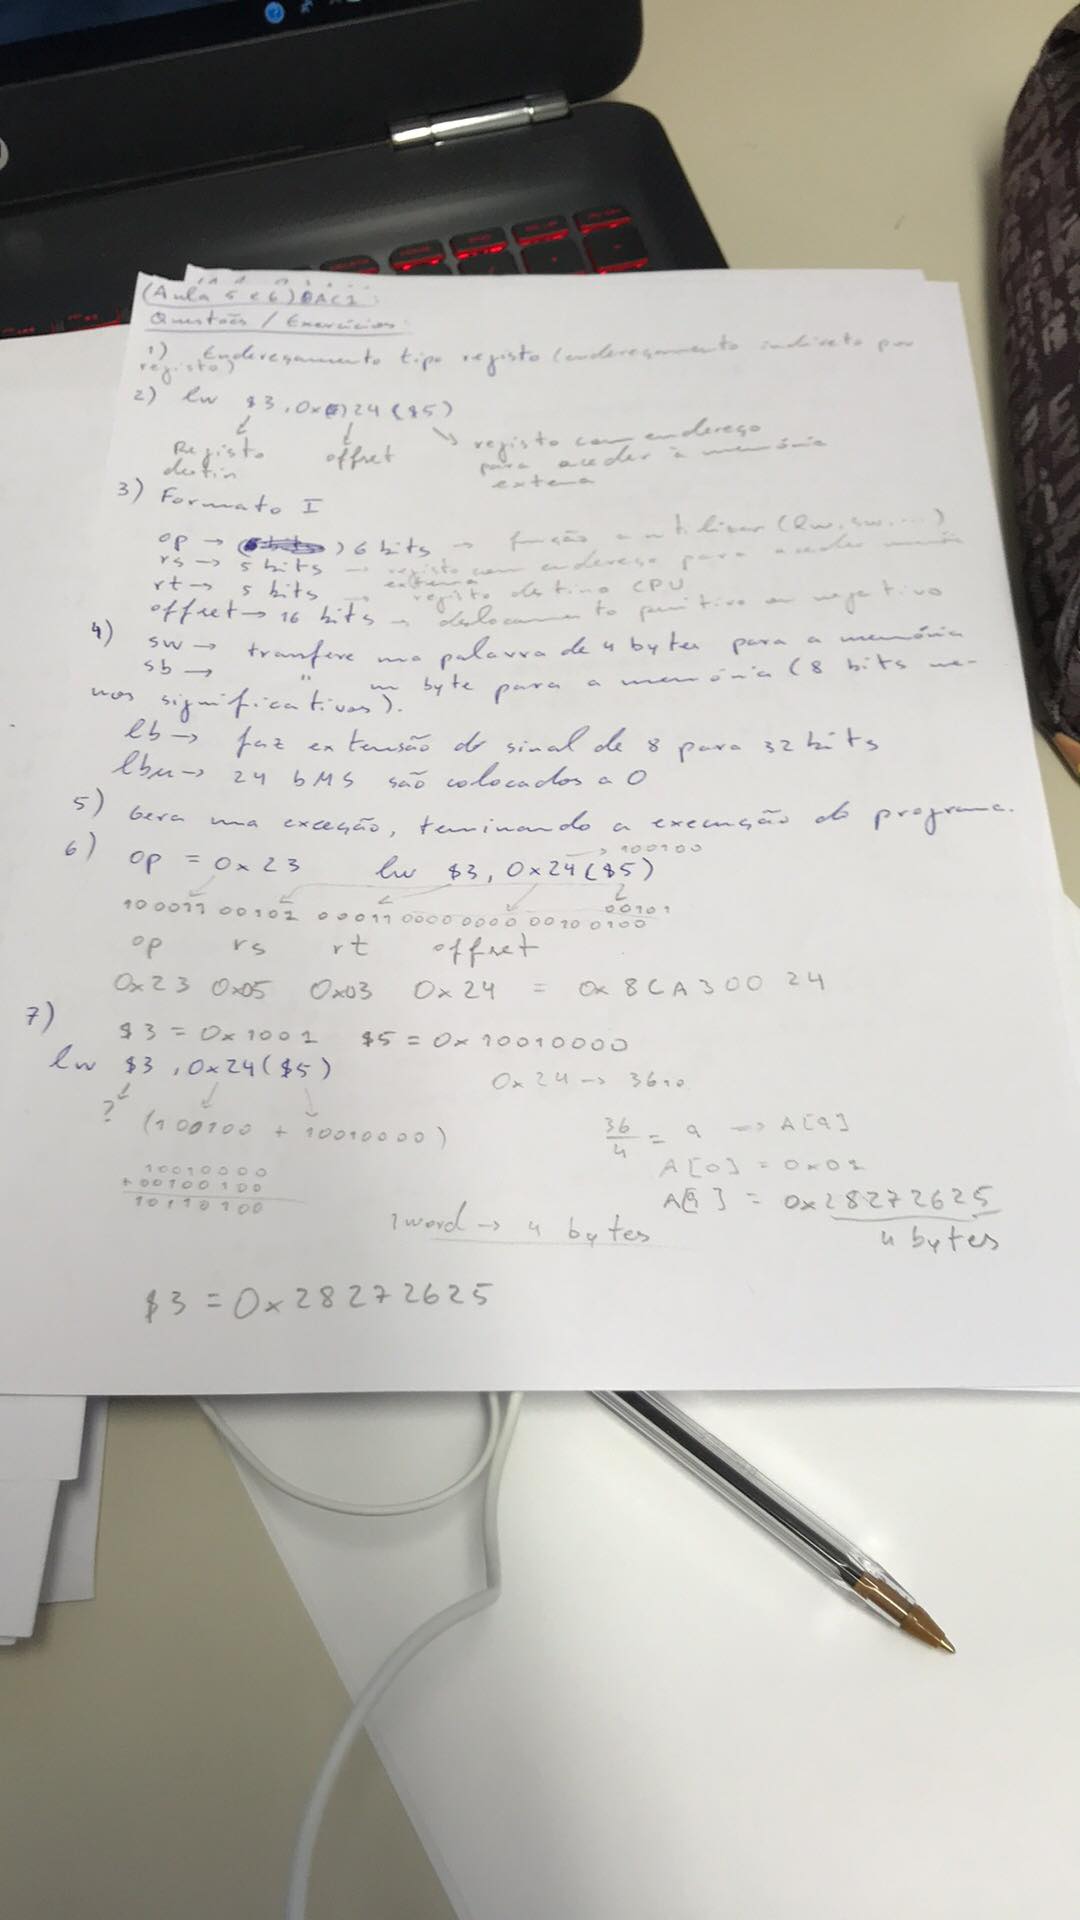 (Aula 5 e 6) AC1:
Questões / Exercícios:
1) Endereçamento tipo registo (endereçamento indireto por
registo)
2) lw $3, 0x 24 ($5)
Registo destin
offset
registo com endereço
para aceder à memória
externa
3) Formato I
op → 6 bits → função a utilizar (lw, sw, ...)
rs → 5 bits → registo com endereço para aceder memória
externa
rt → 5 bits → registo destino CPU
offset → 16 bits → deslocamento positivo ou negativo
4) sw → transfere uma palavra de 4 bytes para a memória
sb → " um byte para a memória (8 bits me-
nos significativos).
lb → faz extensão do sinal de 8 para 32 bits
lbu → 24 bMS são colocados a 0
5) Gera uma exceção, terminando a execução do programa.
6) op = 0x23 lw $3, 0x24($5) → 100100
00101
100011 00101 00011 0000 0000 0010 0100
op rs rt offset
0x23 0x05 0x03 0x24 = 0x 8CA300 24
7) $3 = 0x1001 $5 = 0x10010000
lw $3, 0x24($5)
0x24 → 36₁₀
? (100100 + 10010000)
36/4 = 9 => A[9]
A[0] = 0x01
A[9] = 0x28272625
4 bytes
10010000
+ 00100100
10110100
1 word → 4 bytes
$3 = 0x28272625